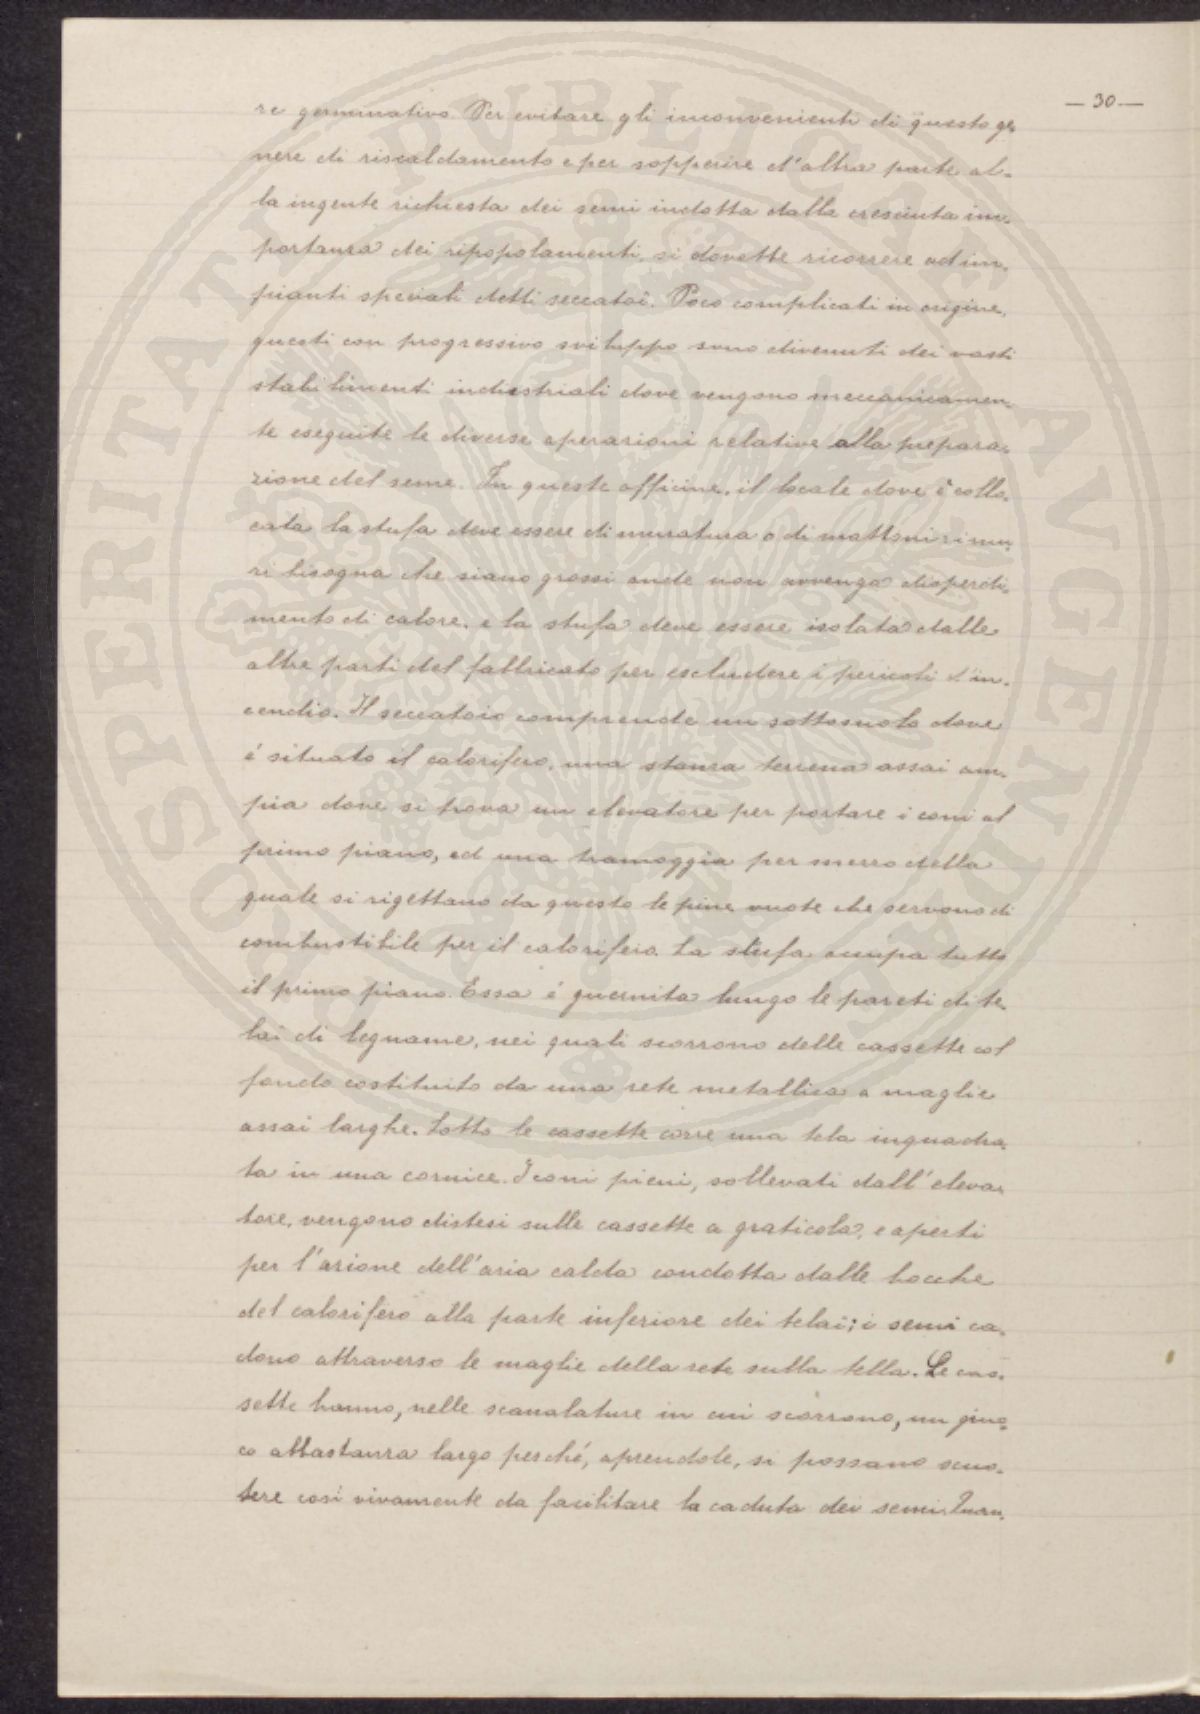 — 30 —
re germinativo. Per evitare gli inconvenienti di questo ge-
nere di riscaldamento e per sopperire d'altra parte al-
la ingente richiesta dei semi indotta dalla cresciuta im-
portanza dei ripopolamenti, si dovette ricorrere ad im-
pianti speciali detti seccatoi. Poco complicati in origine,
questi con progressivo sviluppo sono divenuti dei vasti
stabilimenti industriali dove vengono meccanicamen-
te eseguite le diverse operazioni relative alla prepara-
zione del seme. In queste officine, il locale dove è collo-
cata la stufa deve essere di muratura o di mattoni i mu-
ri bisogna che siano grossi onde non avvenga disperdi-
mento di calore, e la stufa deve essere isolata dalle
altre parti del fabbricato per escludere i pericoli d'in-
cendio. Il seccatoio comprende un sottosuolo dove
è situato il calorifero, una stanza terrena assai am-
pia dove si trova un elevatore per portare i coni al
primo piano, ed una tramoggia per mezzo della
quale si rigettano da questo le pine vuote che servono di
combustibile per il calorifero. La stufa occupa tutto
il primo piano. Essa è guernita lungo le pareti di te-
lai di legname, nei quali scorrono delle cassette col
fondo costituito da una rete metallica a maglie
assai larghe. Sotto le cassette corre una tela inquadra-
ta in una cornice. I coni pieni, sollevati dall'eleva-
tore, vengono distesi sulle cassette a graticola, e aperti
per l'azione dell'aria calda condotta dalle bocche
del calorifero alla parte inferiore dei telai; i semi ca-
dono attraverso le maglie della rete sulla tella. Le cas-
sette hanno, nelle scanalature in cui scorrono, un giuo-
co abbastanza largo perché, aprendole, si possano scuo-
tere così vivamente da facilitare la caduta dei semi. Quan-
PROSPERITATI PUBLICAE AVGENDAE